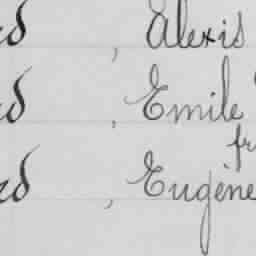 rd , Alexis
rd , Emile
fr
rd , Eugène